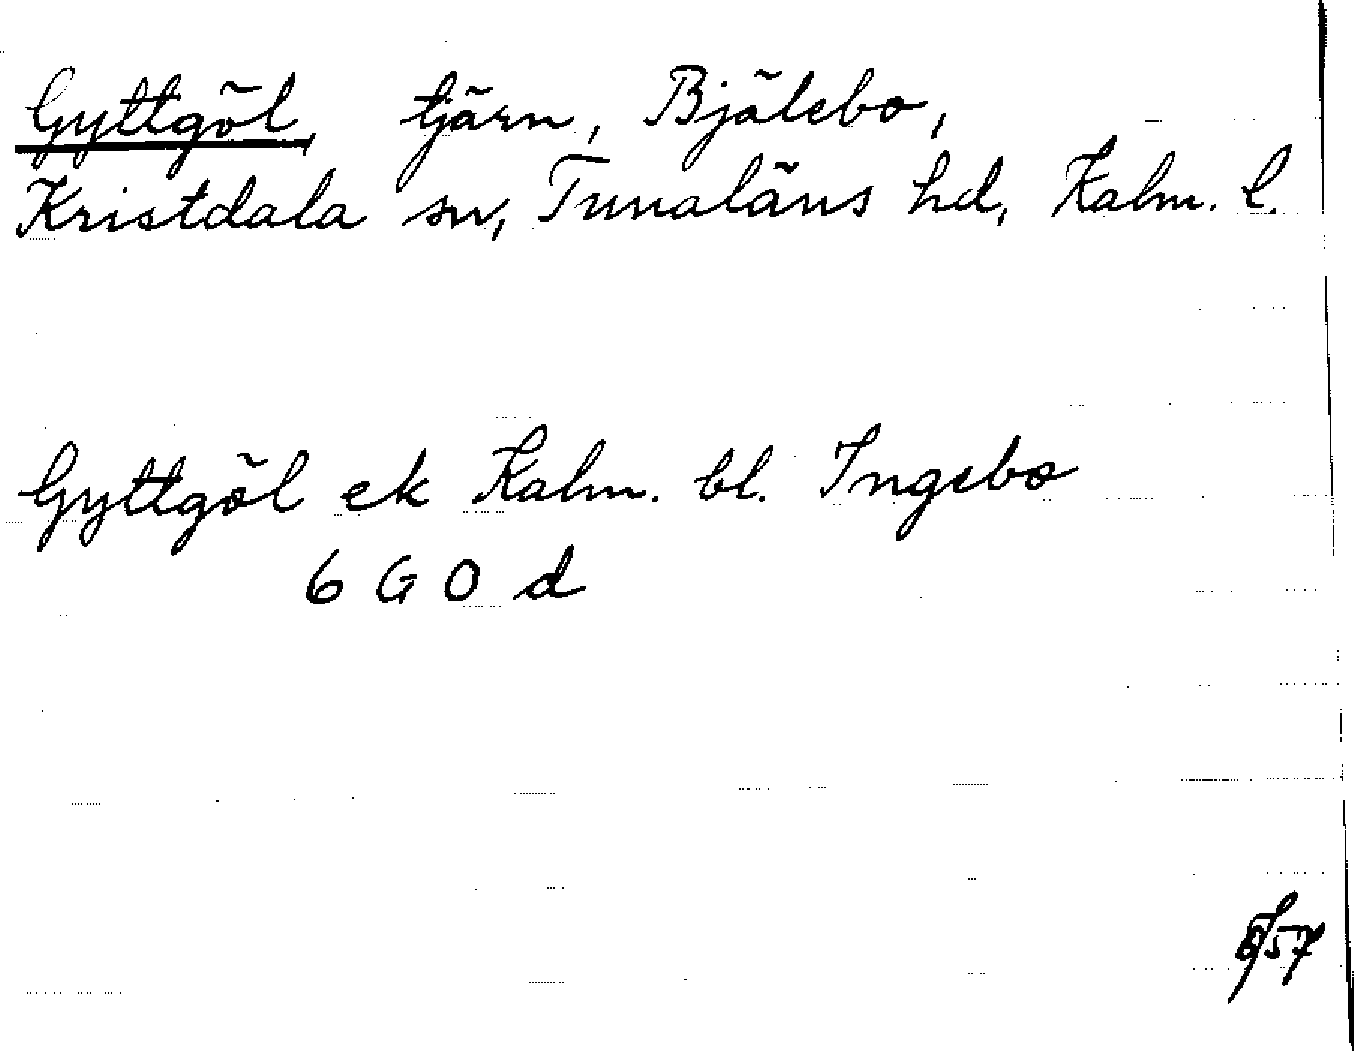 Gyttgöl, tjärn, Bjälebo,
Kristdala sn, Tunaläns hd, Kalm. l.
Gyttgöl ek Kalm. bl. Ingebo
6 G 0 d